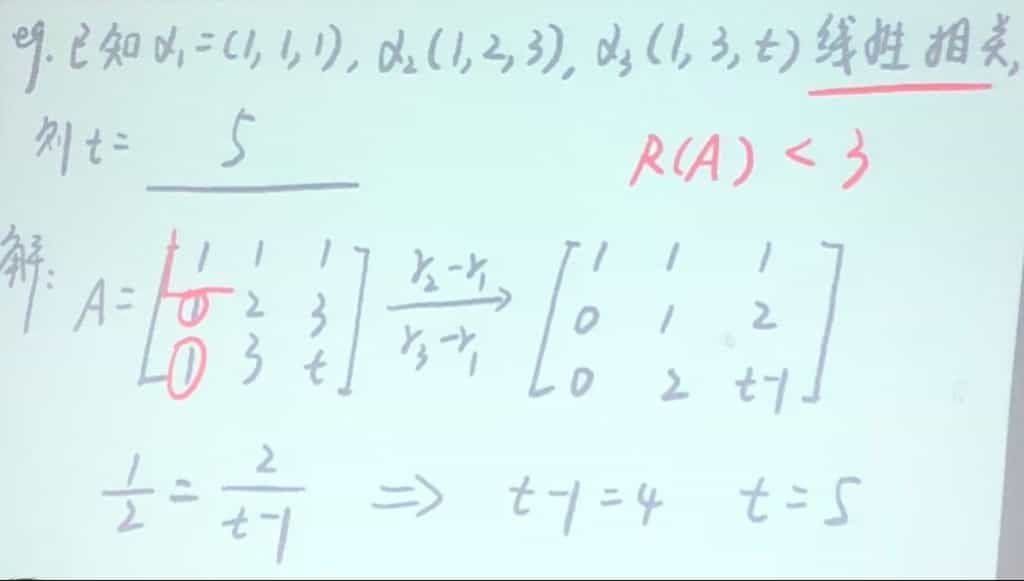 eg. 已知 α₁=(1,1,1), α₂(1,2,3), α₃(1,3,t) 线性相关,
则 t= 5
R(A) < 3
解: A= [1 1 1; 1 2 3; 1 3 t] r₂-r₁ r₃-r₁ → [1 1 1; 0 1 2; 0 2 t-1]
1/2 = 2/(t-1) => t-1=4 t=5